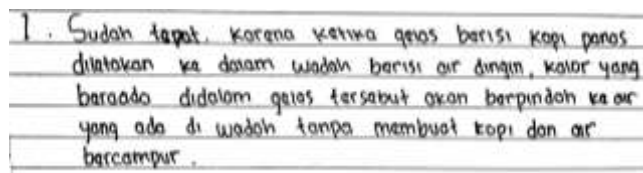 1. Sudah tepat. Karena ketika gelas berisi kopi panas
diletakan ke dalam wadah berisi air dingin, kalor yang
berada didalam gelas tersebut akan berpindah ke air
yang ada di wadah tanpa membuat kopi dan air
bercampur.